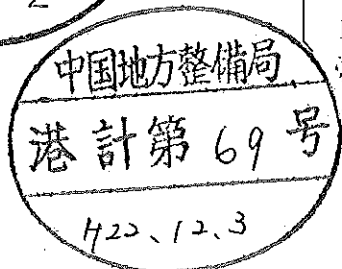 中国地方整備局
港計第69号
H22、12、3